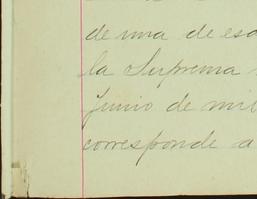 de una de esa
la Suprema
Junio de mil
corresponde a